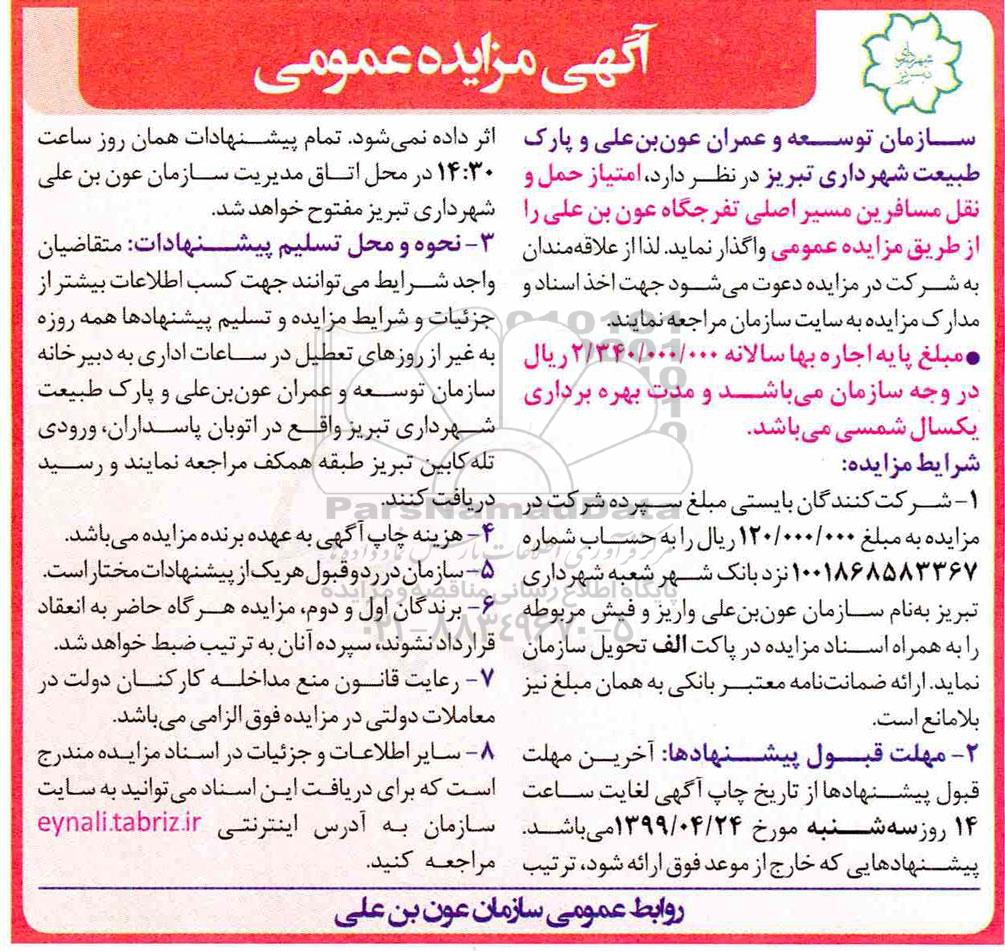 آگهی مزایده عمومی
شهرداری
تبریز
سازمان توسعه و عمران عون‌بن‌علی و پارک
طبیعت شهرداری تبریز در نظر دارد، امتیاز حمل و
نقل مسافرین مسیر اصلی تفرجگاه عون بن علی را
از طریق مزایده عمومی واگذار نماید. لذا از علاقه‌مندان
به شرکت در مزایده دعوت می‌شود جهت اخذ اسناد و
مدارک مزایده به سایت سازمان مراجعه نمایند.
●مبلغ پایه اجاره بها سالانه ۲/۳۴۰/۰۰۰/۰۰۰ ریال
در وجه سازمان می‌باشد و مدت بهره برداری
یکسال شمسی می‌باشد.
شرایط مزایده:
۱- شرکت کنندگان بایستی مبلغ سپرده شرکت در
مزایده به مبلغ ۱۲۰/۰۰۰/۰۰۰ ریال را به حساب شماره
۱۰۰۱۸۶۸۵۸۳۳۶۷ نزد بانک شهر شعبه شهرداری
تبریز به‌نام سازمان عون‌بن‌علی واریز و فیش مربوطه
را به همراه اسناد مزایده در پاکت الف تحویل سازمان
نماید. ارائه ضمانت‌نامه معتبر بانکی به همان مبلغ نیز
بلامانع است.
۲- مهلت قبول پیشنهادها: آخرین مهلت
قبول پیشنهادها از تاریخ چاپ آگهی لغایت ساعت
۱۴ روز سه‌شنبه مورخ ۱۳۹۹/۰۴/۲۴ می‌باشد.
پیشنهادهایی که خارج از موعد فوق ارائه شود، ترتیب
اثر داده نمی‌شود. تمام پیشنهادات همان روز ساعت
۱۴:۳۰ در محل اتاق مدیریت سازمان عون بن علی
شهرداری تبریز مفتوح خواهد شد.
۳- نحوه و محل تسلیم پیشنهادات: متقاضیان
واجد شرایط می‌توانند جهت کسب اطلاعات بیشتر از
جزئیات و شرایط مزایده و تسلیم پیشنهادها همه روزه
به غیر از روزهای تعطیل در ساعات اداری به دبیر خانه
سازمان توسعه و عمران عون‌بن‌علی و پارک طبیعت
شهرداری تبریز واقع در اتوبان پاسداران، ورودی
تله کابین تبریز طبقه همکف مراجعه نمایند و رسید
دریافت کنند.
۴- هزینه چاپ آگهی به عهده برنده مزایده می‌باشد.
۵- سازمان در رد و قبول هر یک از پیشنهادات مختار است.
۶- برندگان اول و دوم، مزایده هر گاه حاضر به انعقاد
قرارداد نشوند، سپرده آنان به ترتیب ضبط خواهد شد.
۷- رعایت قانون منع مداخله کارکنان دولت در
معاملات دولتی در مزایده فوق الزامی می‌باشد.
۸- سایر اطلاعات و جزئیات در اسناد مزایده مندرج
است که برای دریافت این اسناد می‌توانید به سایت
سازمان به آدرس اینترنتی eynali.tabriz.ir
مراجعه کنید.
روابط عمومی سازمان عون بن علی
ParsNamadData
مرکز فرآوری اطلاعات پارس نماد داده ها
پایگاه اطلاع رسانی مناقصه و مزایده
۰۲۱-۸۸۳۴۹۶۷۰-۵